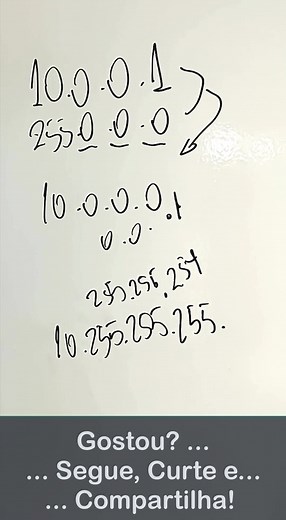 10.0.0.1
255.0.0.0
10.0.0.0.1
0.0.
255.255.254
10.255.255.255.
Gostou? ...
... Segue, Curte e...
... Compartilha!